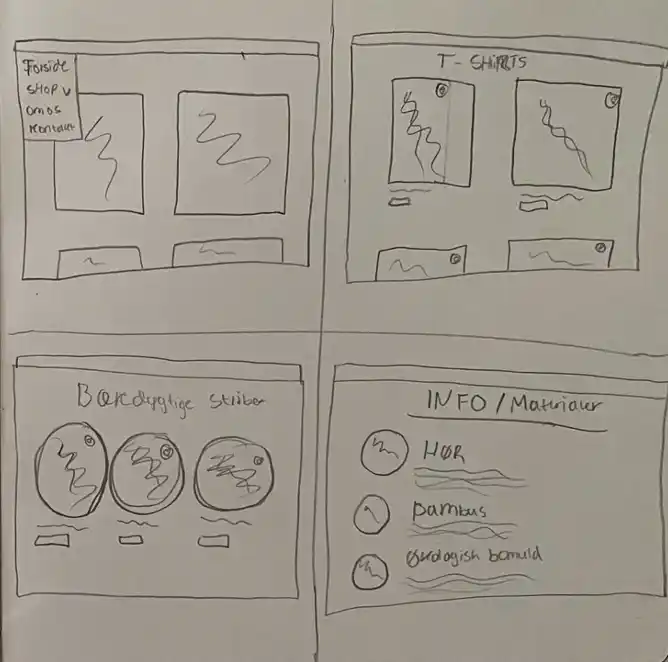 Forside
SHOP v
om os
Kontakt
T-SHIRTS
Bæredygtige striber
INFO/Materialer
HØR
bambus
økologish bomuld